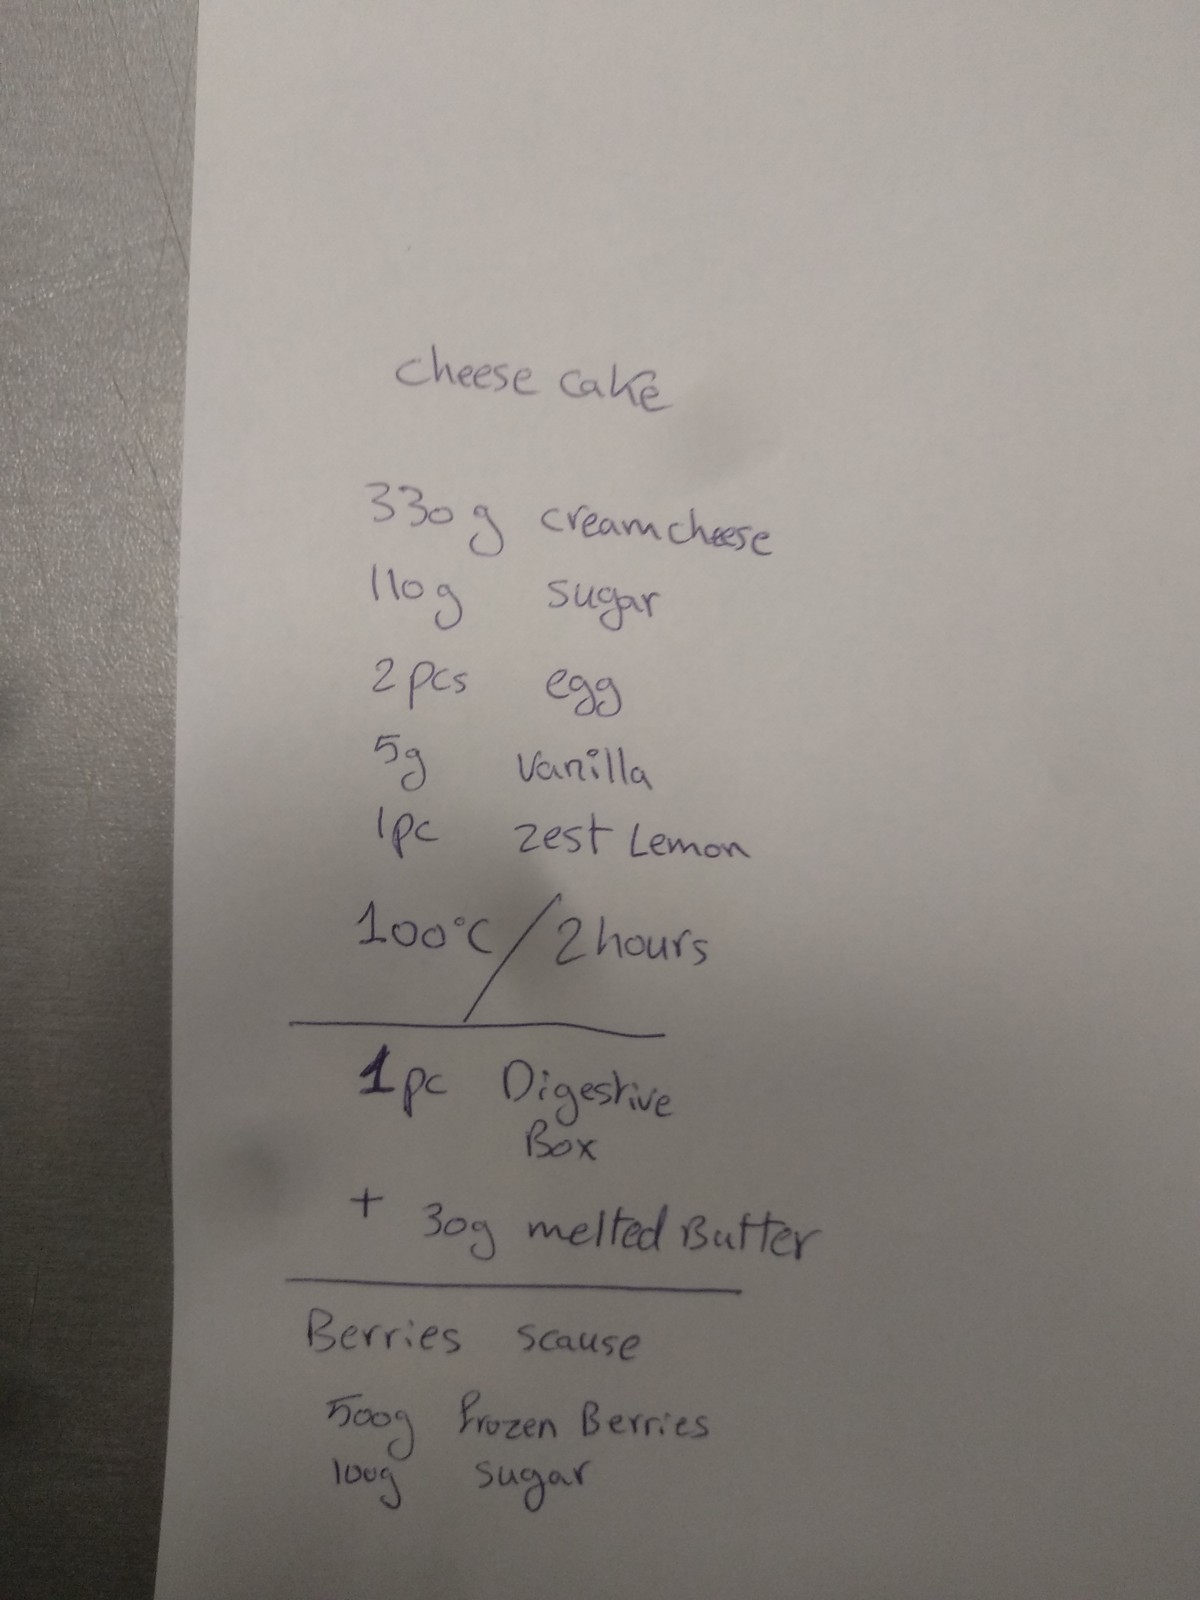 cheese cake
330g creamcheese
110g sugar
2pcs egg
5g vanilla
1pc zest Lemon
100°C / 2 hours
1pc Digestive
Box
+ 30g melted Butter
Berries scause
500g frozen Berries
100g sugar